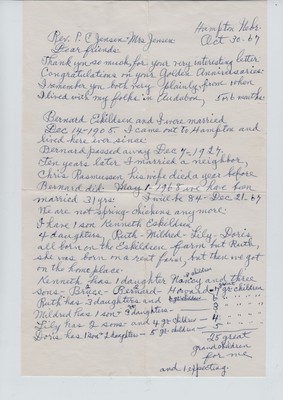 Hampton Nebr.
Rev. P. C Jensen - Mrs Jensen Oct 30-67
Dear friends:
Thank you so much for your very interesting letter
Congratulations on your Golden Anniversaries
I remember you both very plainly from when
I lived with my folks in Audubon, 5 or 6 months
Bernard Eskildsen and I were married
Dec 14-1905 I came out to Hampton and
lived here ever since.
Bernard passed away Dec 7-1927.
Ten years later I married a neighbor,
Chris Rasmussen his wife died a year before
Bernard did. May 1-1968 we have been
married 31 yrs. I will be 84 - Dec 21-67
We are not spring-chickens anymore.
I have 1 son Kenneth Eskildsen
4 daughters, Ruth - Mildred - Lily - Doris
all born on the Eskildsen farm but Ruth,
she was born on a rent farm, but then we got
on the home place.
Kenneth has 1 daughter Nancy and three
sons - Bruce - Bernard - Howard gr. children
Ruth has 3 daughters and gr children
Mildred has 1 son daughters
Lily has 2 sons and 4 gr. children - 4
Doris has 1 son 2 daughter - 5 gr. children 5
25 great
grandchildren
for me
and 1 expecting.